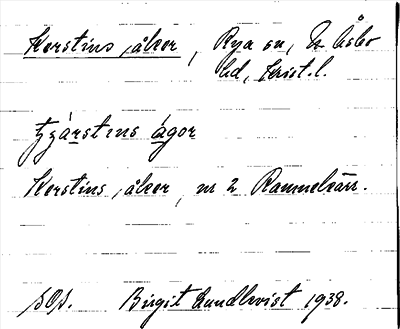 Kerstins åker, Rya sn, N. Åsbo
hd, Krist. l.
tʒárstens ágor
Kerstins åker, nr 2 Rammelsårr.
SOS. Birgit Lundkvist 1938.